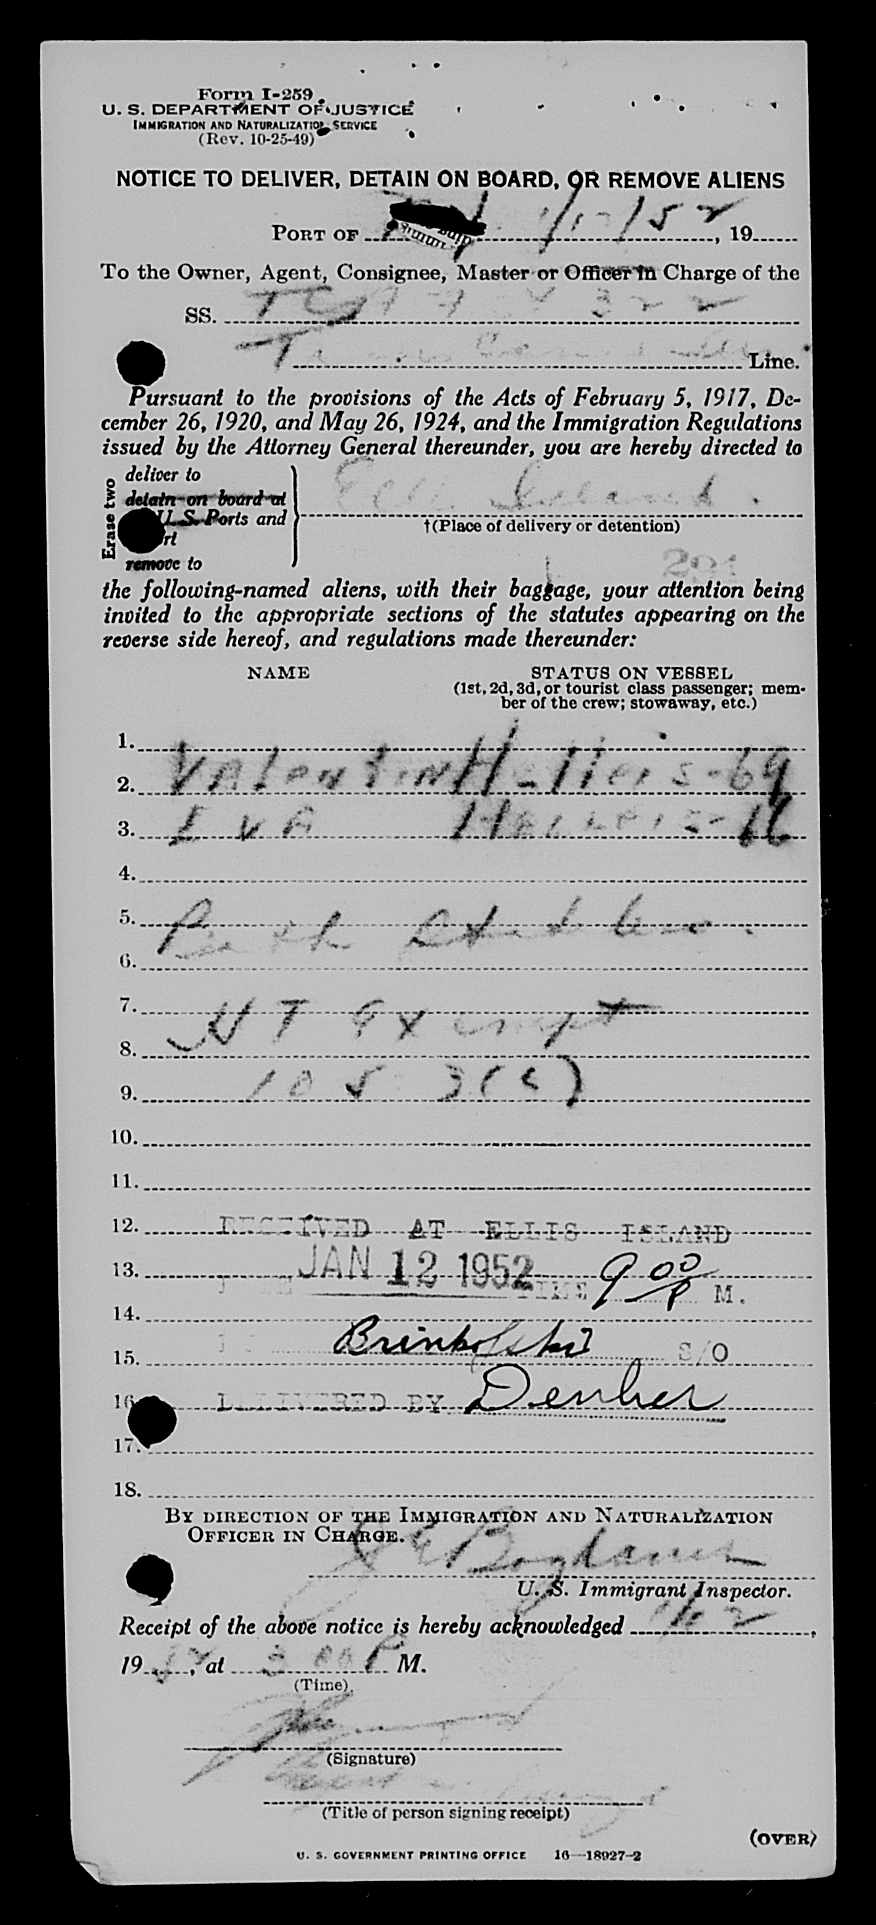 Form I-259
U. S. DEPARTMENT OF JUSTICE
IMMIGRATION AND NATURALIZATION SERVICE
(Rev. 10-25-49)
NOTICE TO DELIVER, DETAIN ON BOARD, OR REMOVE ALIENS
PORT OF 1/12/52, 19
To the Owner, Agent, Consignee, Master or Officer in Charge of the
SS. 322
Line.
Pursuant to the provisions of the Acts of February 5, 1917, De-
cember 26, 1920, and May 26, 1924, and the Immigration Regulations
issued by the Attorney General thereunder, you are hereby directed to
deliver to
detain on board at
U. S. Ports and
Erase two
remove to
Ellis Island.
†(Place of delivery or detention)
the following-named aliens, with their baggage, your attention being
invited to the appropriate sections of the statutes appearing on the
reverse side hereof, and regulations made thereunder:
NAME STATUS ON VESSEL
(1st, 2d, 3d, or tourist class passenger; mem-
ber of the crew; stowaway, etc.)
1.
2. Valentin - 69
3. Eva
4.
5. Both
6.
7. HT Exempt
8.
9.
10.
11.
12. RECEIVED AT ELLIS ISLAND
13. JAN 12 1952 TIME 9 00 P M.
14.
15. S/O
16. DELIVERED BY
17.
18.
BY DIRECTION OF THE IMMIGRATION AND NATURALIZATION
OFFICER IN CHARGE.
U. S. Immigrant Inspector.
Receipt of the above notice is hereby acknowledged 1/12,
1952, at 3 00 P M.
(Time)
(Signature)
(Title of person signing receipt)
(OVER)
U. S. GOVERNMENT PRINTING OFFICE 16—18927-2